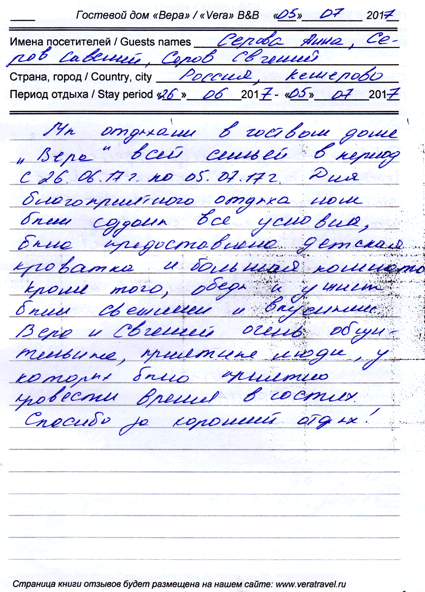 Гостевой дом «Вера» / «Vera» B&B «05» 07 2017
Имена посетителей / Guests names Серова Анна, Се-
ров Савелий, Серов Евгений
Страна, город / Country, city Россия, Кемерово
Период отдыха / Stay period «26» 06 2017 - «05» 07 2017
Мы отдыхали в гостевом доме
„Вера“ всей семьей в период
с 26.06.17г. по 05.07.17г. Для
благоприятного отдыха нам
были созданы все условия,
была предоставлена детская
кроватка и большая комната
кроме того, обеды и ужины
были свежими и вкусными.
Вера и Евгений очень общи-
тельные, приятные люди, у
которых было приятно
провести время в гостях.
Спасибо за хороший отдых!
Страница книги отзывов будет размещена на нашем сайте: www.veratravel.ru